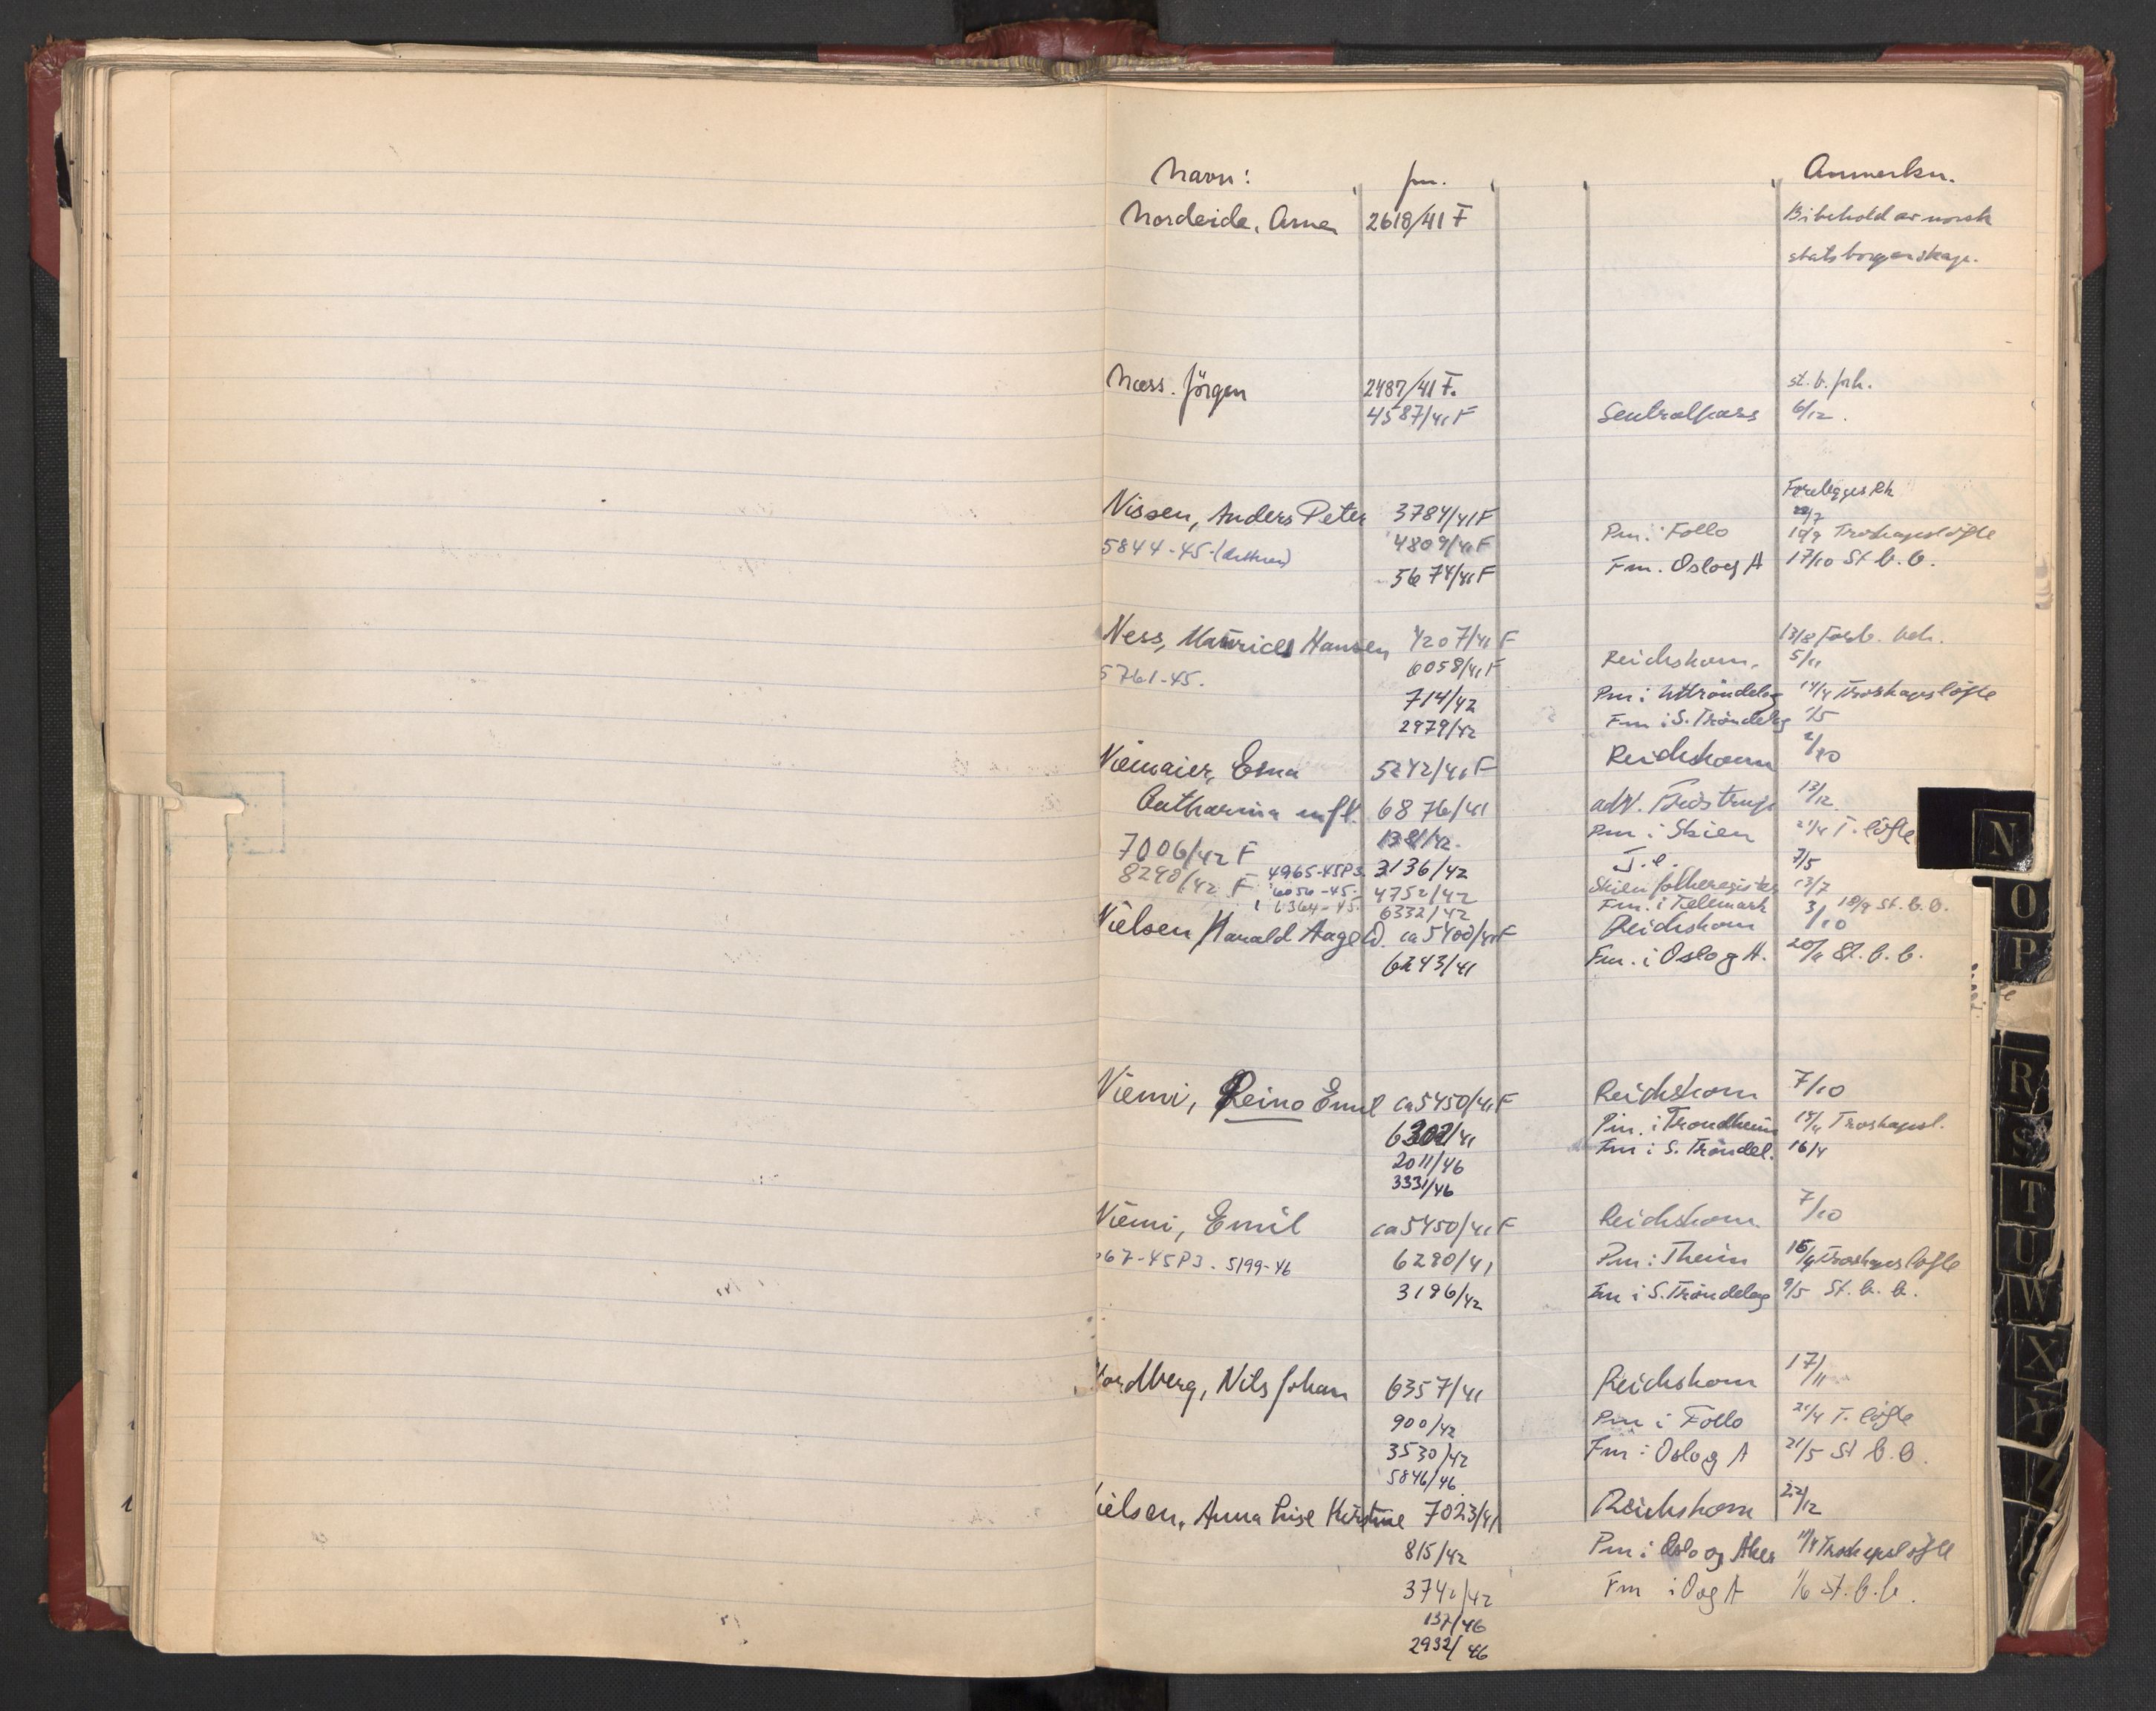 Navn: jnr. Anmerkn.
Nordeide, Arne 2618/41 F Bibehold av norsk
statsborgerskap.
Næss. Jörgen 2487/41 F. st. b. forh.
4587/41 F Sentralpass 6/12.
Forelegges Rk
Nissen, Anders Peter 3784/41 F 22/7
4809/41 F Pm. i Follo 10/9 Troskapslöfte
5844-45-
5674/41 F Fm. Oslo og A 17/10 St b. b.
Ness, Hansen 4207/41 F 13/8
5761-45. 6058/41 F Reichskom. 5/11
714/42 Pm i 14/4 Troskapslöfte
2979/42 Fm i S. Tröndelag 1/5
Niemaier, Erna 5242/41 F Reichskom 2/10
Catharina 6876/41 adv. 13/12
1381/42. Pm i Skien 21/4 T. löfte
7006/42 F
4965-45P3. 3136/42 7/5
8290/42 F 6056-45- 4752/42 Skien folkeregister 13/7
6364-45. 6332/42 Fm. i Telemark 18/9 St. b. b.
Nielsen Harald Aage ca 5400/41 F Reichskom 3/10
6243/41 Fm. i Oslo og A. 20/11 St. b. b.
Niemi, Reino Emil ca 5450/41 F Reichskom 7/10
6302/41 Pm. i Trondheim 15/4 Troskapsl.
2011/46 Fm i S. Tröndel. 16/4
3331/46
Niemi, Emil ca 5450/41 F Reichskom 7/10
67-45P3. 5199-46 6290/41 Pm i Theim 15/4 Troskapslöfte
3196/42 Fm i S. Tröndelag 9/5 St. b. b.
Nordberg, Nils Johan 6357/41 Reichskom 17/11
900/42 Pm i Follo 21/4 T. löfte
3530/42 Fm i Oslo og A 21/5 St b. b.
5846/46
ielsen, Anna Lise Kirstine 7023/41 Reichskom 22/12
815/42 Pm i Oslo og Aker 11/4 Troskapslöfte
3741/42 Fm i O og A 1/6 st. b. b.
137/46
2932/46
N
O
P
R
S
T
U
W
X
Y
Z